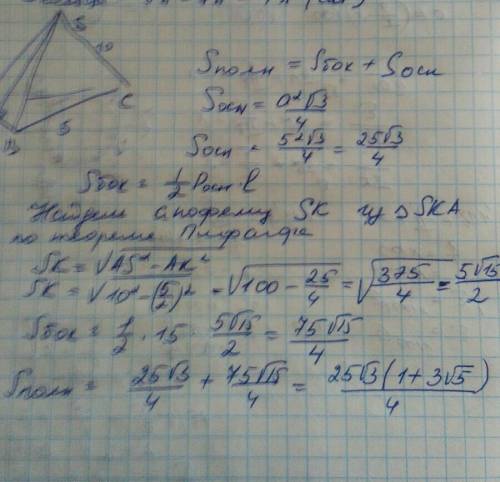 S
10
C
5
Sполн = Sбок + Sосн
Sосн = a²√3/4
Sосн = 5²√3/4 = 25√3/4
Sбок = 1/2 Pосн · l
Найдем апофему SK из △ SKA
по теореме Пифагора
SK = √AS² - AK²
SK = √10² - (5/2)² = √100 - 25/4 = √375/4 = 5√15/2
Sбок = 1/2 · 15 · 5√15/2 = 75√15/4
Sполн = 25√3/4 + 75√15/4 = 25√3(1+3√5)/4